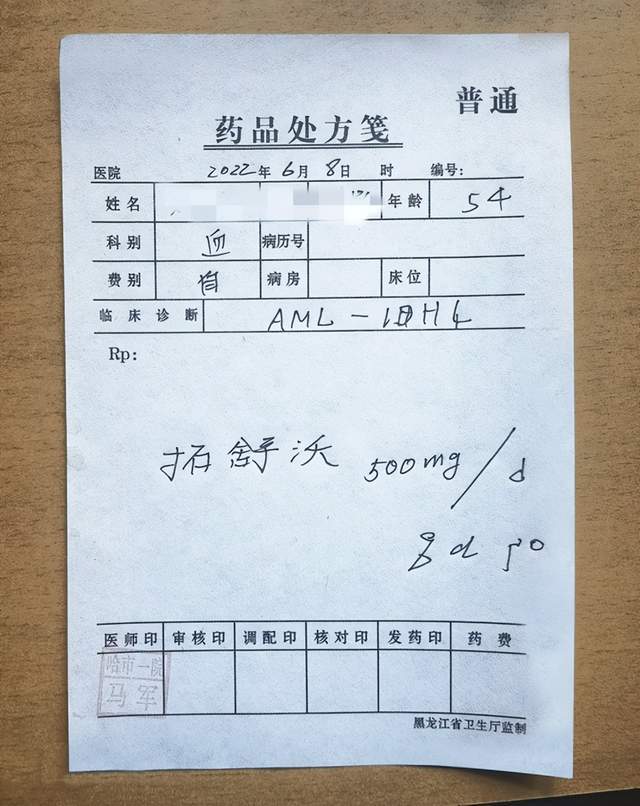 普通
药品处方笺
医院 2022年6月8日 时 编号:
姓名 年龄 54
科别 血 病历号
费别 自 病房 床位
临床诊断 AML-IDH1
Rp:
拓舒沃 500mg/d
qd po
医师印 审核印 调配印 核对印 发药印 药费
哈市一院
马军
黑龙江省卫生厅监制